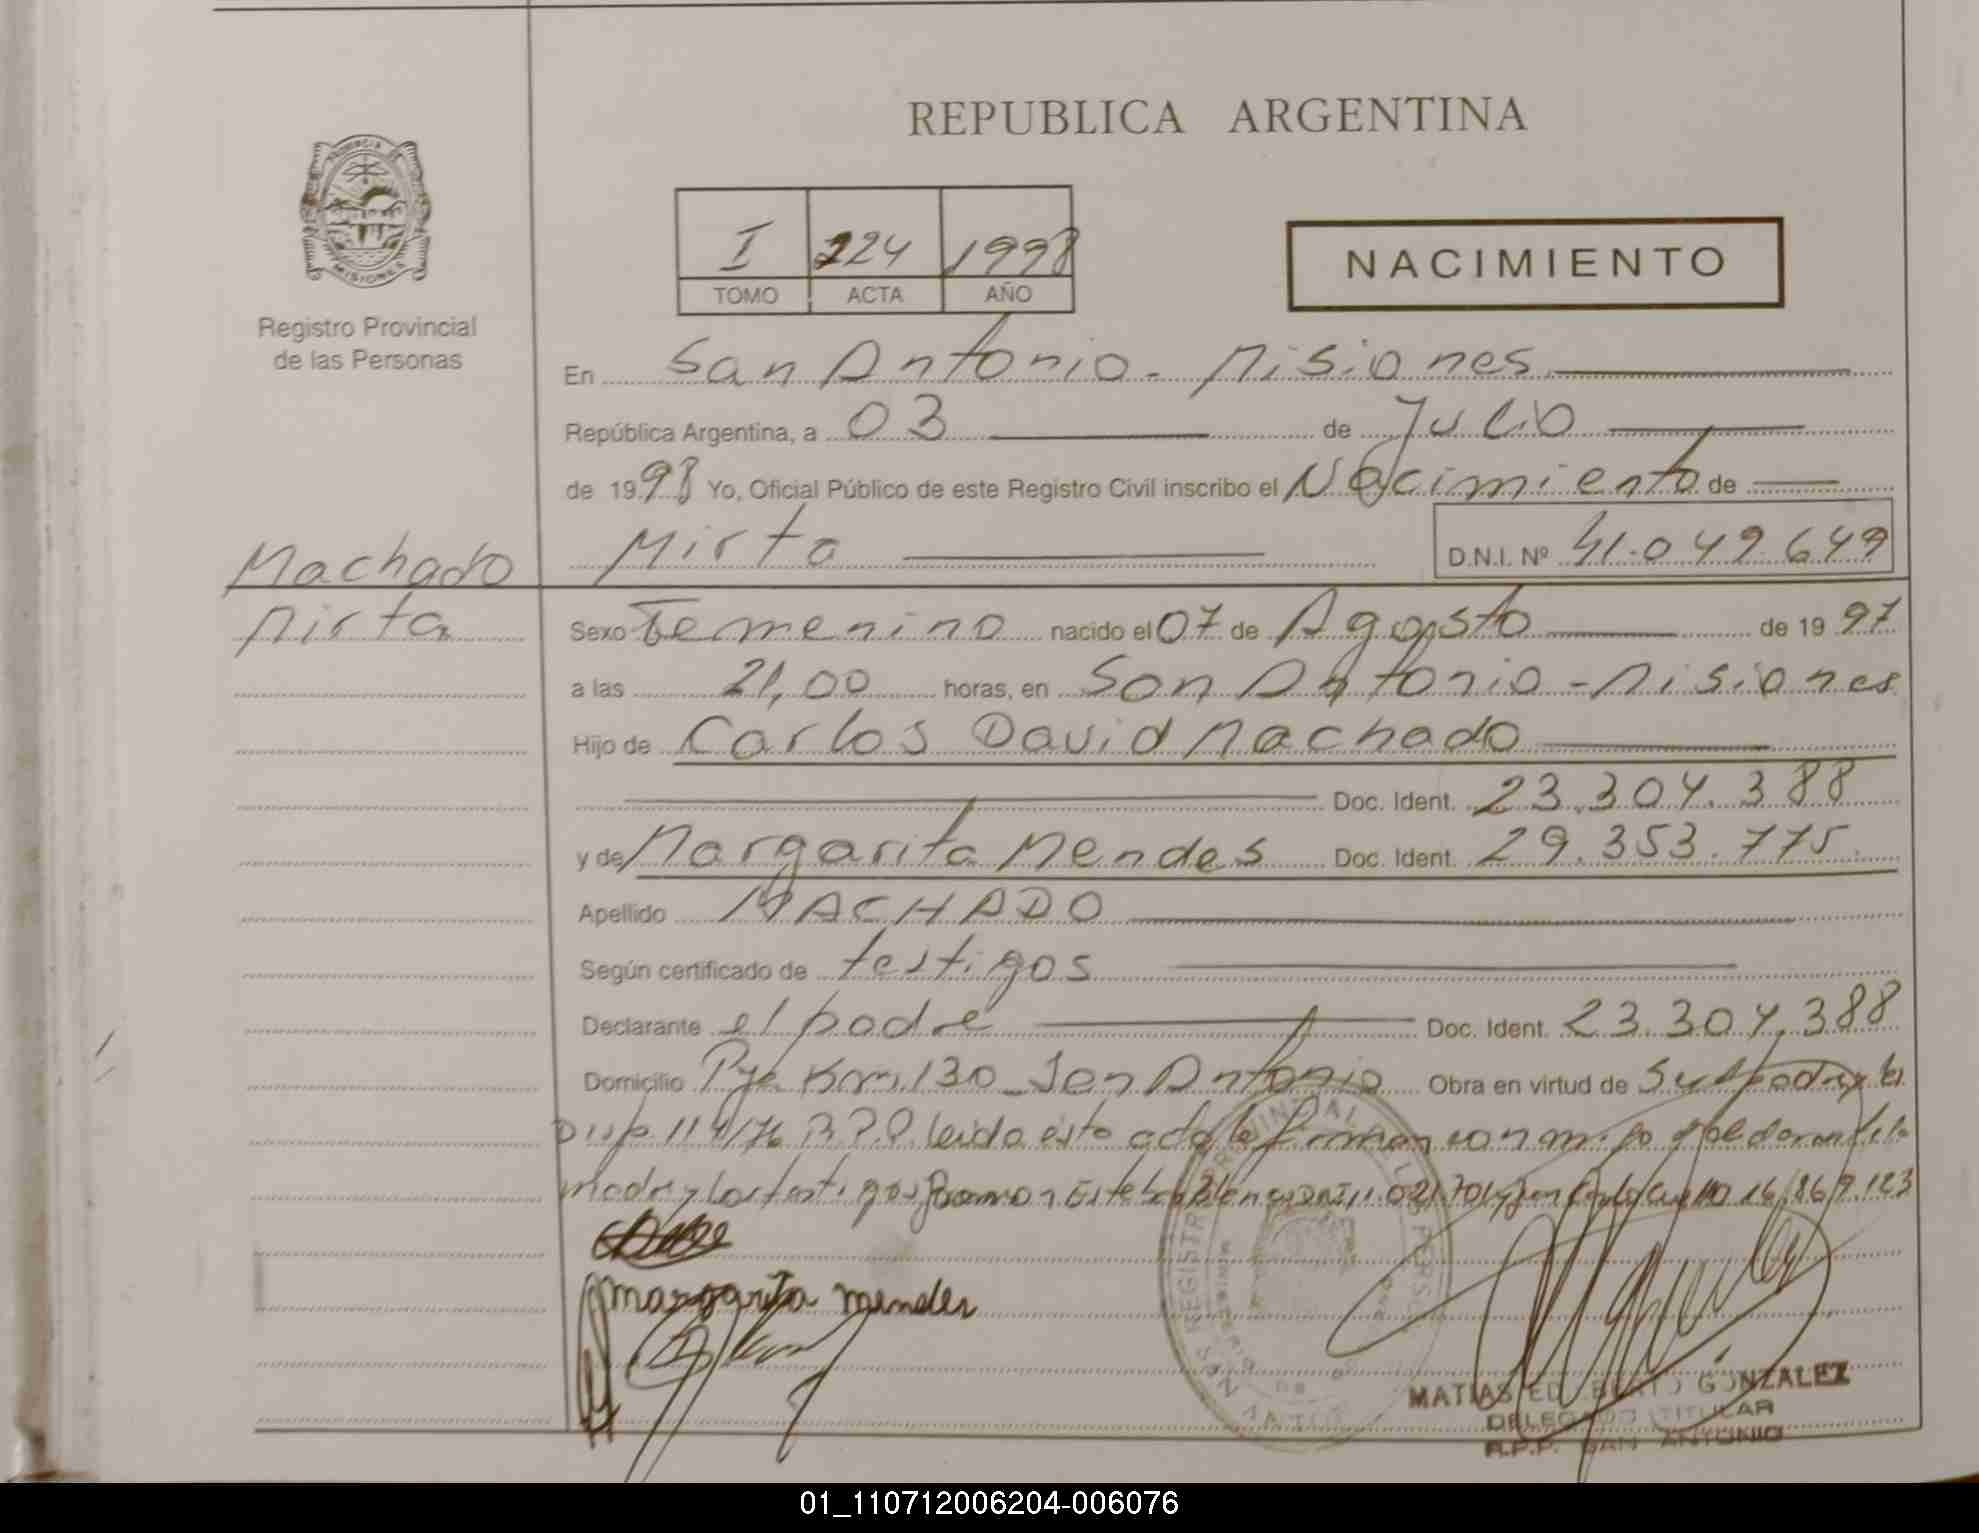 REPUBLICA ARGENTINA
PROVINCIA DE
MISIONES
Registro Provincial
de las Personas
I 224 1998
TOMO ACTA AÑO
NACIMIENTO
En San Antonio - Misiones
República Argentina, a 03 de Julio
de 1998 Yo, Oficial Público de este Registro Civil inscribo el Nacimiento de
Mirta D.N.I. Nº 41.049.649
Machado
Mirta
Sexo Femenino nacido el 07 de Agosto de 1997
a las 21,00 horas, en San Antonio - Misiones
Hijo de Carlos David Machado
Doc. Ident. 23.304.388
y de Margarita Mendes Doc. Ident. 29.353.775
Apellido MACHADO
Según certificado de testigos
Declarante el padre Doc. Ident. 23.304.388
Domicilio Pje Km 130 San Antonio Obra en virtud de
Disp. 114/76 R.P.P. leida esta acta la firman conmigo el
madre y los testigos Ramon 16.869.123
margarita mendes
MATIAS GONZALEZ
DELEGADO TITULAR
R.P.P. SAN ANTONIO
01_110712006204-006076